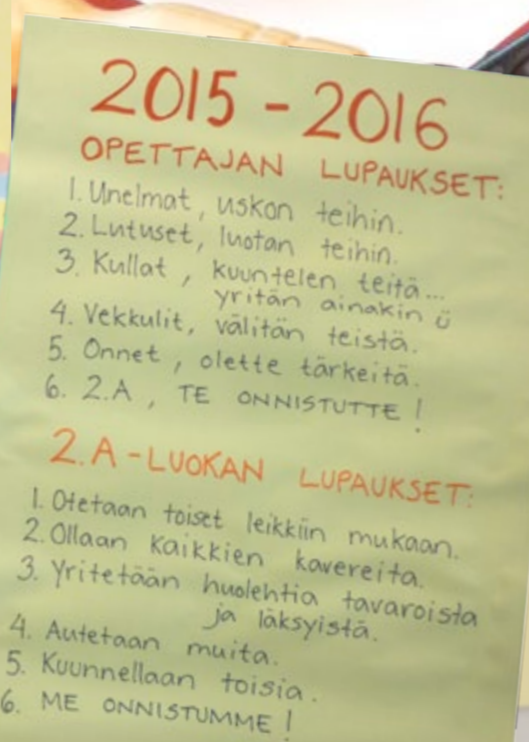 2015 - 2016
OPETTAJAN LUPAUKSET:
1. Unelmat, uskon teihin.
2. Lutuset, luotan teihin.
3. Kullat, kuuntelen teitä...
yritän ainakin ü
4. Vekkulit, välitän teistä.
5. Onnet, olette tärkeitä.
6. 2.A, TE ONNISTUTTE!
2.A-LUOKAN LUPAUKSET:
1. Otetaan toiset leikkiin mukaan.
2. Ollaan kaikkien kavereita.
3. Yritetään huolehtia tavaroista
ja läksyistä.
4. Autetaan muita.
5. Kuunnellaan toisia.
6. ME ONNISTUMME!